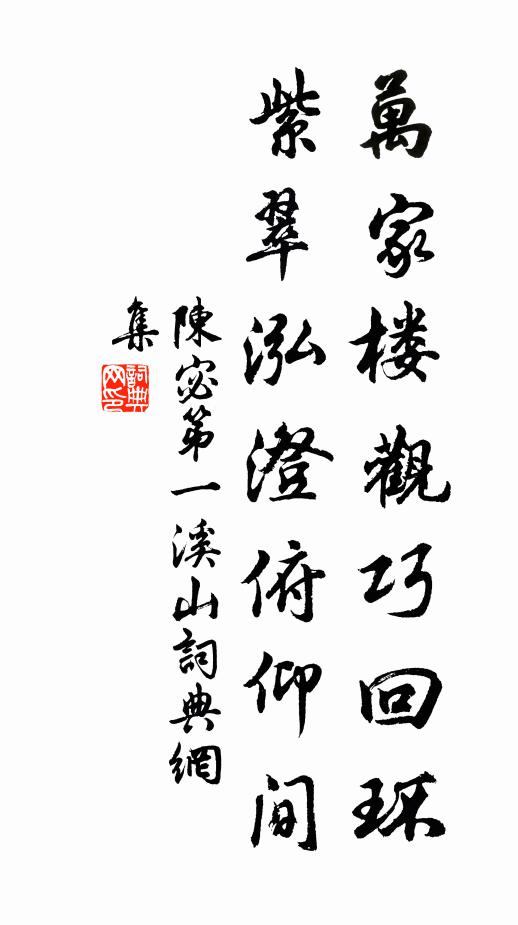 萬家楼觀巧回环
紫翠泓澄俯仰間
陳宓第一溪山詞典網
集
詞典网印